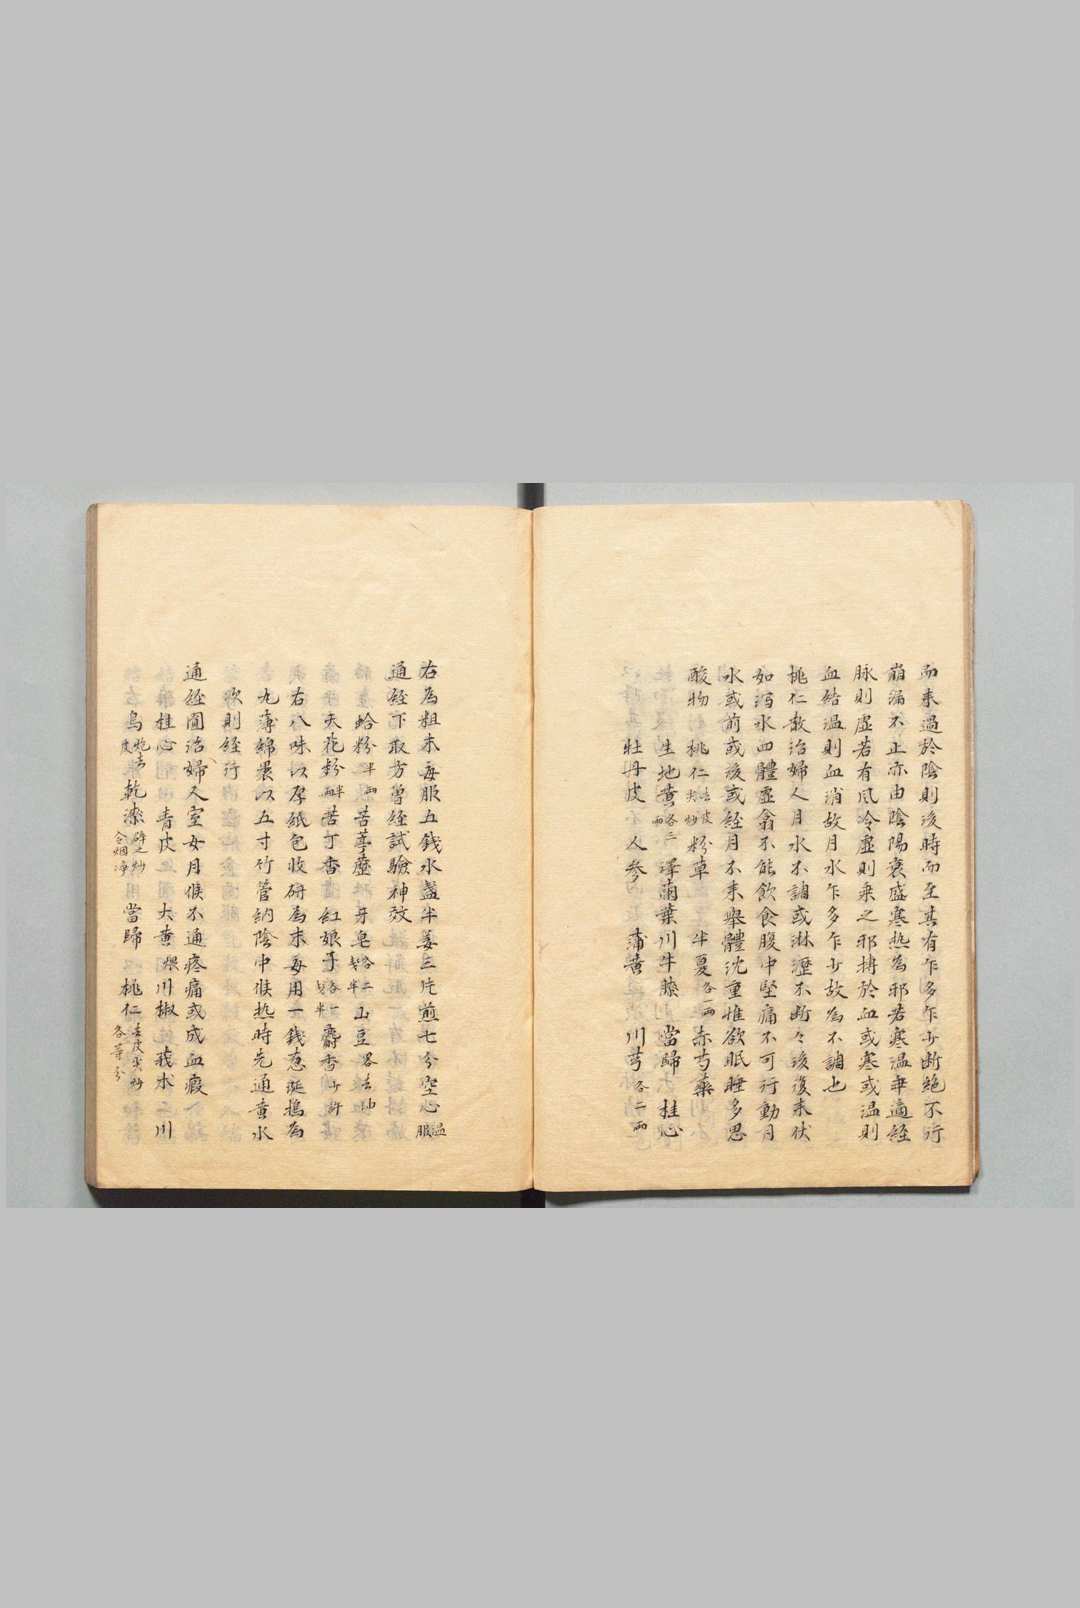 而來過於陰則後時而至其有乍多乍少斷絶不行
崩漏不止亦由陰陽衰盛寒热為邪若寒温乖適經
脉則虚若有風冷虚則乘之邪搏於血或寒或温則
血結温則血消故月水乍多乍少故為不調也
桃仁散治婦人月水不調或淋瀝不断々後復来状
如瀉水四體虚翕不能飲食腹中堅痛不可行動月
水或前或後或經月不来舉體沈重惟欲眠睡多思
酸物 桃仁去皮尖炒 粉草 半夏各一兩 赤芍藥
生地黄各三兩 澤蘭葉 川牛膝 當歸 桂心
牡丹皮 人参 蒲黄 川芎各二兩
右為粗末每服五錢水盞半姜三片煎七分空心温服
通經下取方曽經試驗神效
蛤粉半兩 苦葶藶 牙皂各二戔半 巴豆畧去油
天花粉半兩 苦丁香 紅娘子各一戔半 麝香少許
右八味以厚紙包收研為末每用一錢葱涎搗為
丸薄綿裹以五寸竹管納陰中候热時先通黄水
次則經行
通經圓治婦人室女月候不通疼痛或成血瘕
桂心 青皮 大黄煨 川椒 莪朮 川
烏炮去皮 乾漆碎之炒令烟浄 當歸 桃仁去皮尖炒各等分